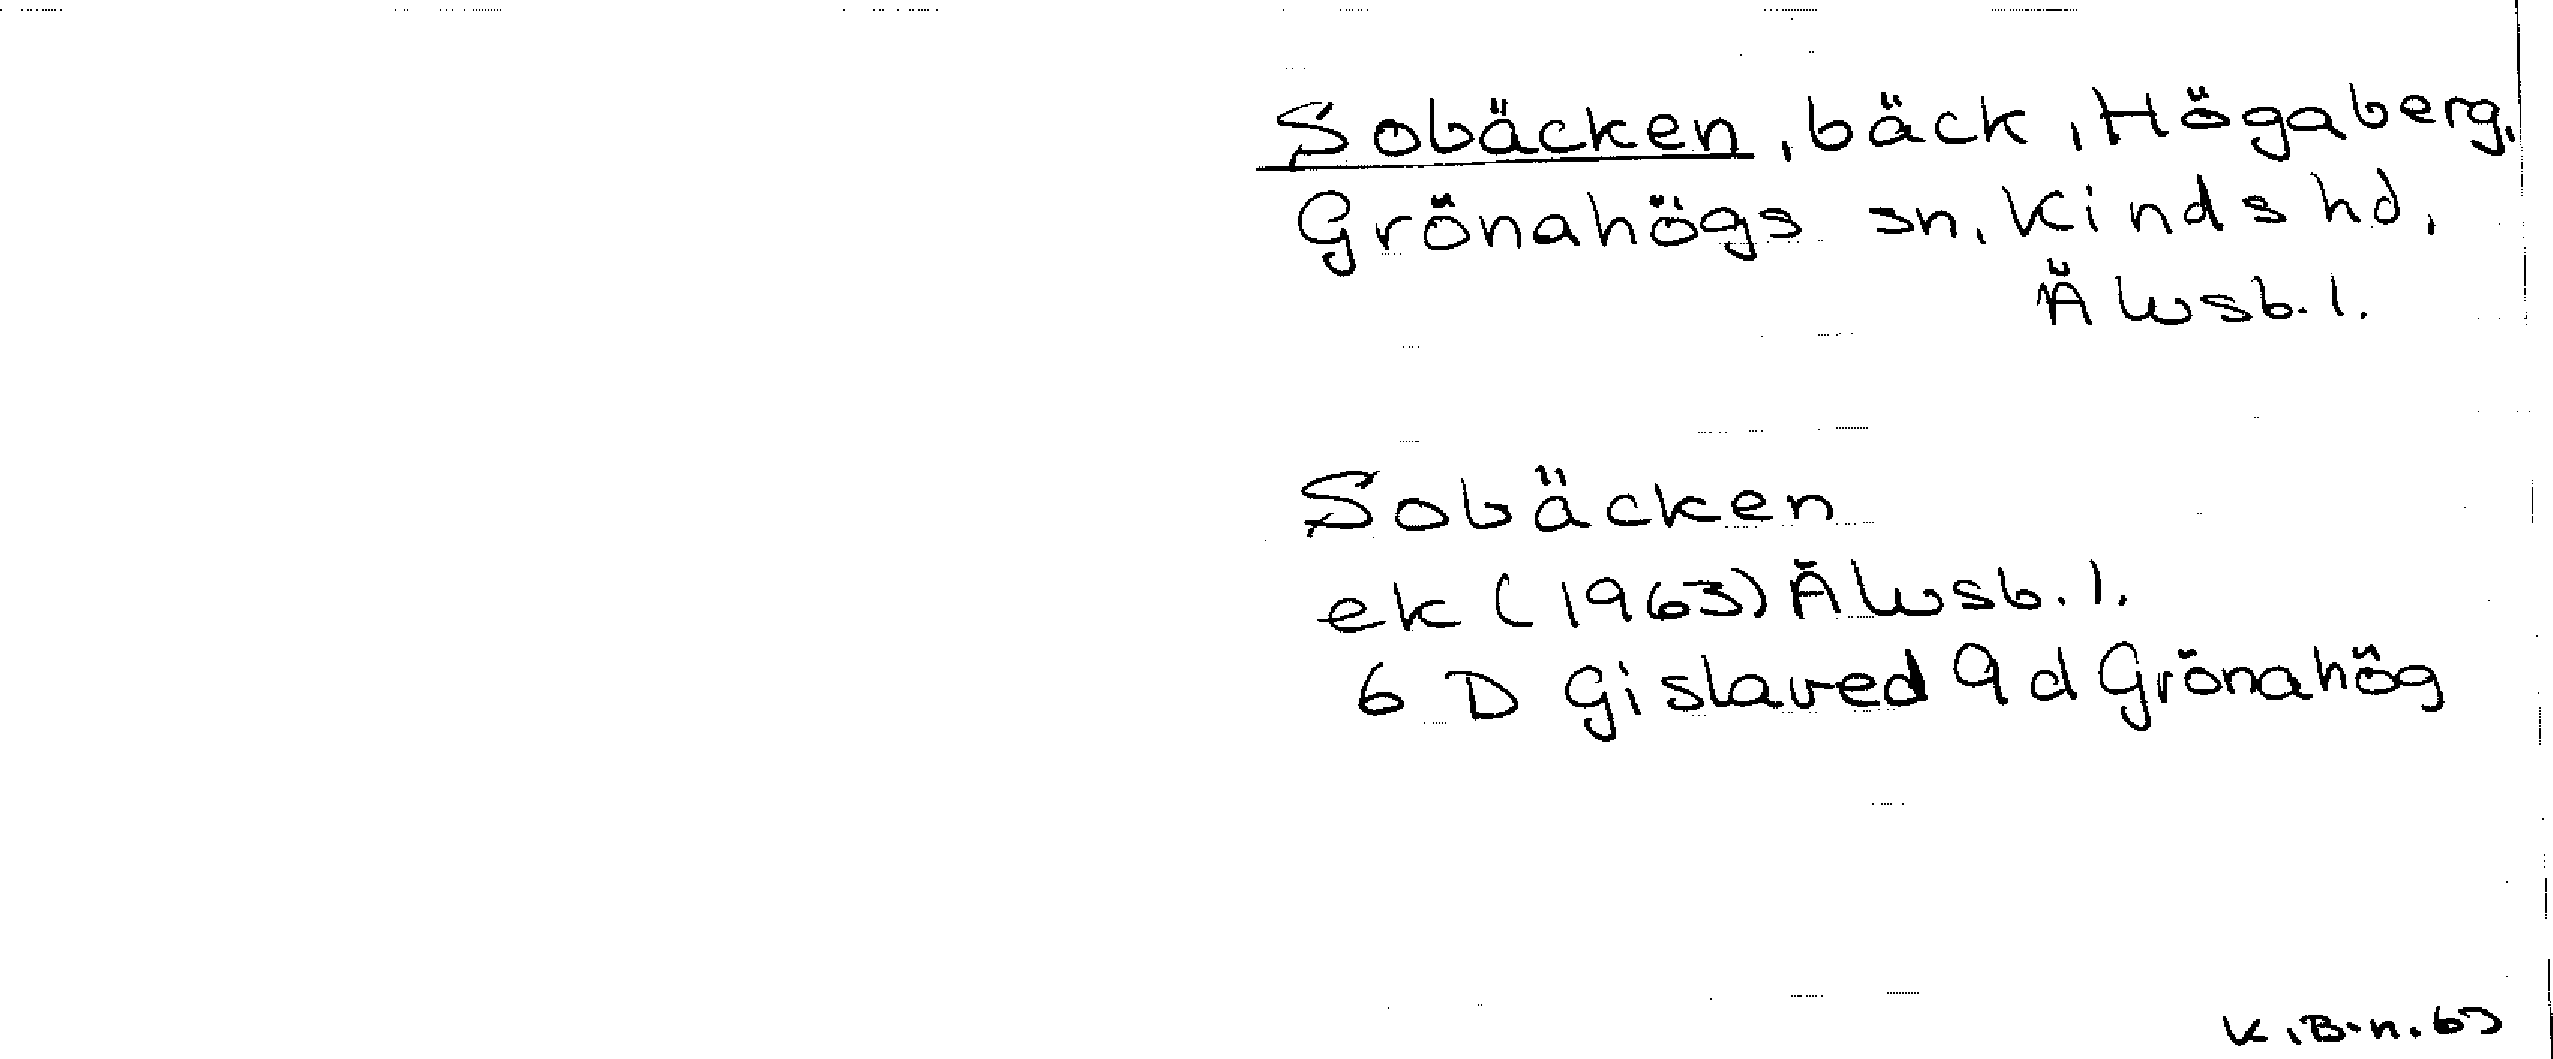 Sobäcken, bäck, Högaberg,
Grönahögs sn, Kinds hd,
Älvsb. l.
Sobäcken
ek (1963) Älvsb. l.
6 D Gislaved 9 d Grönahög